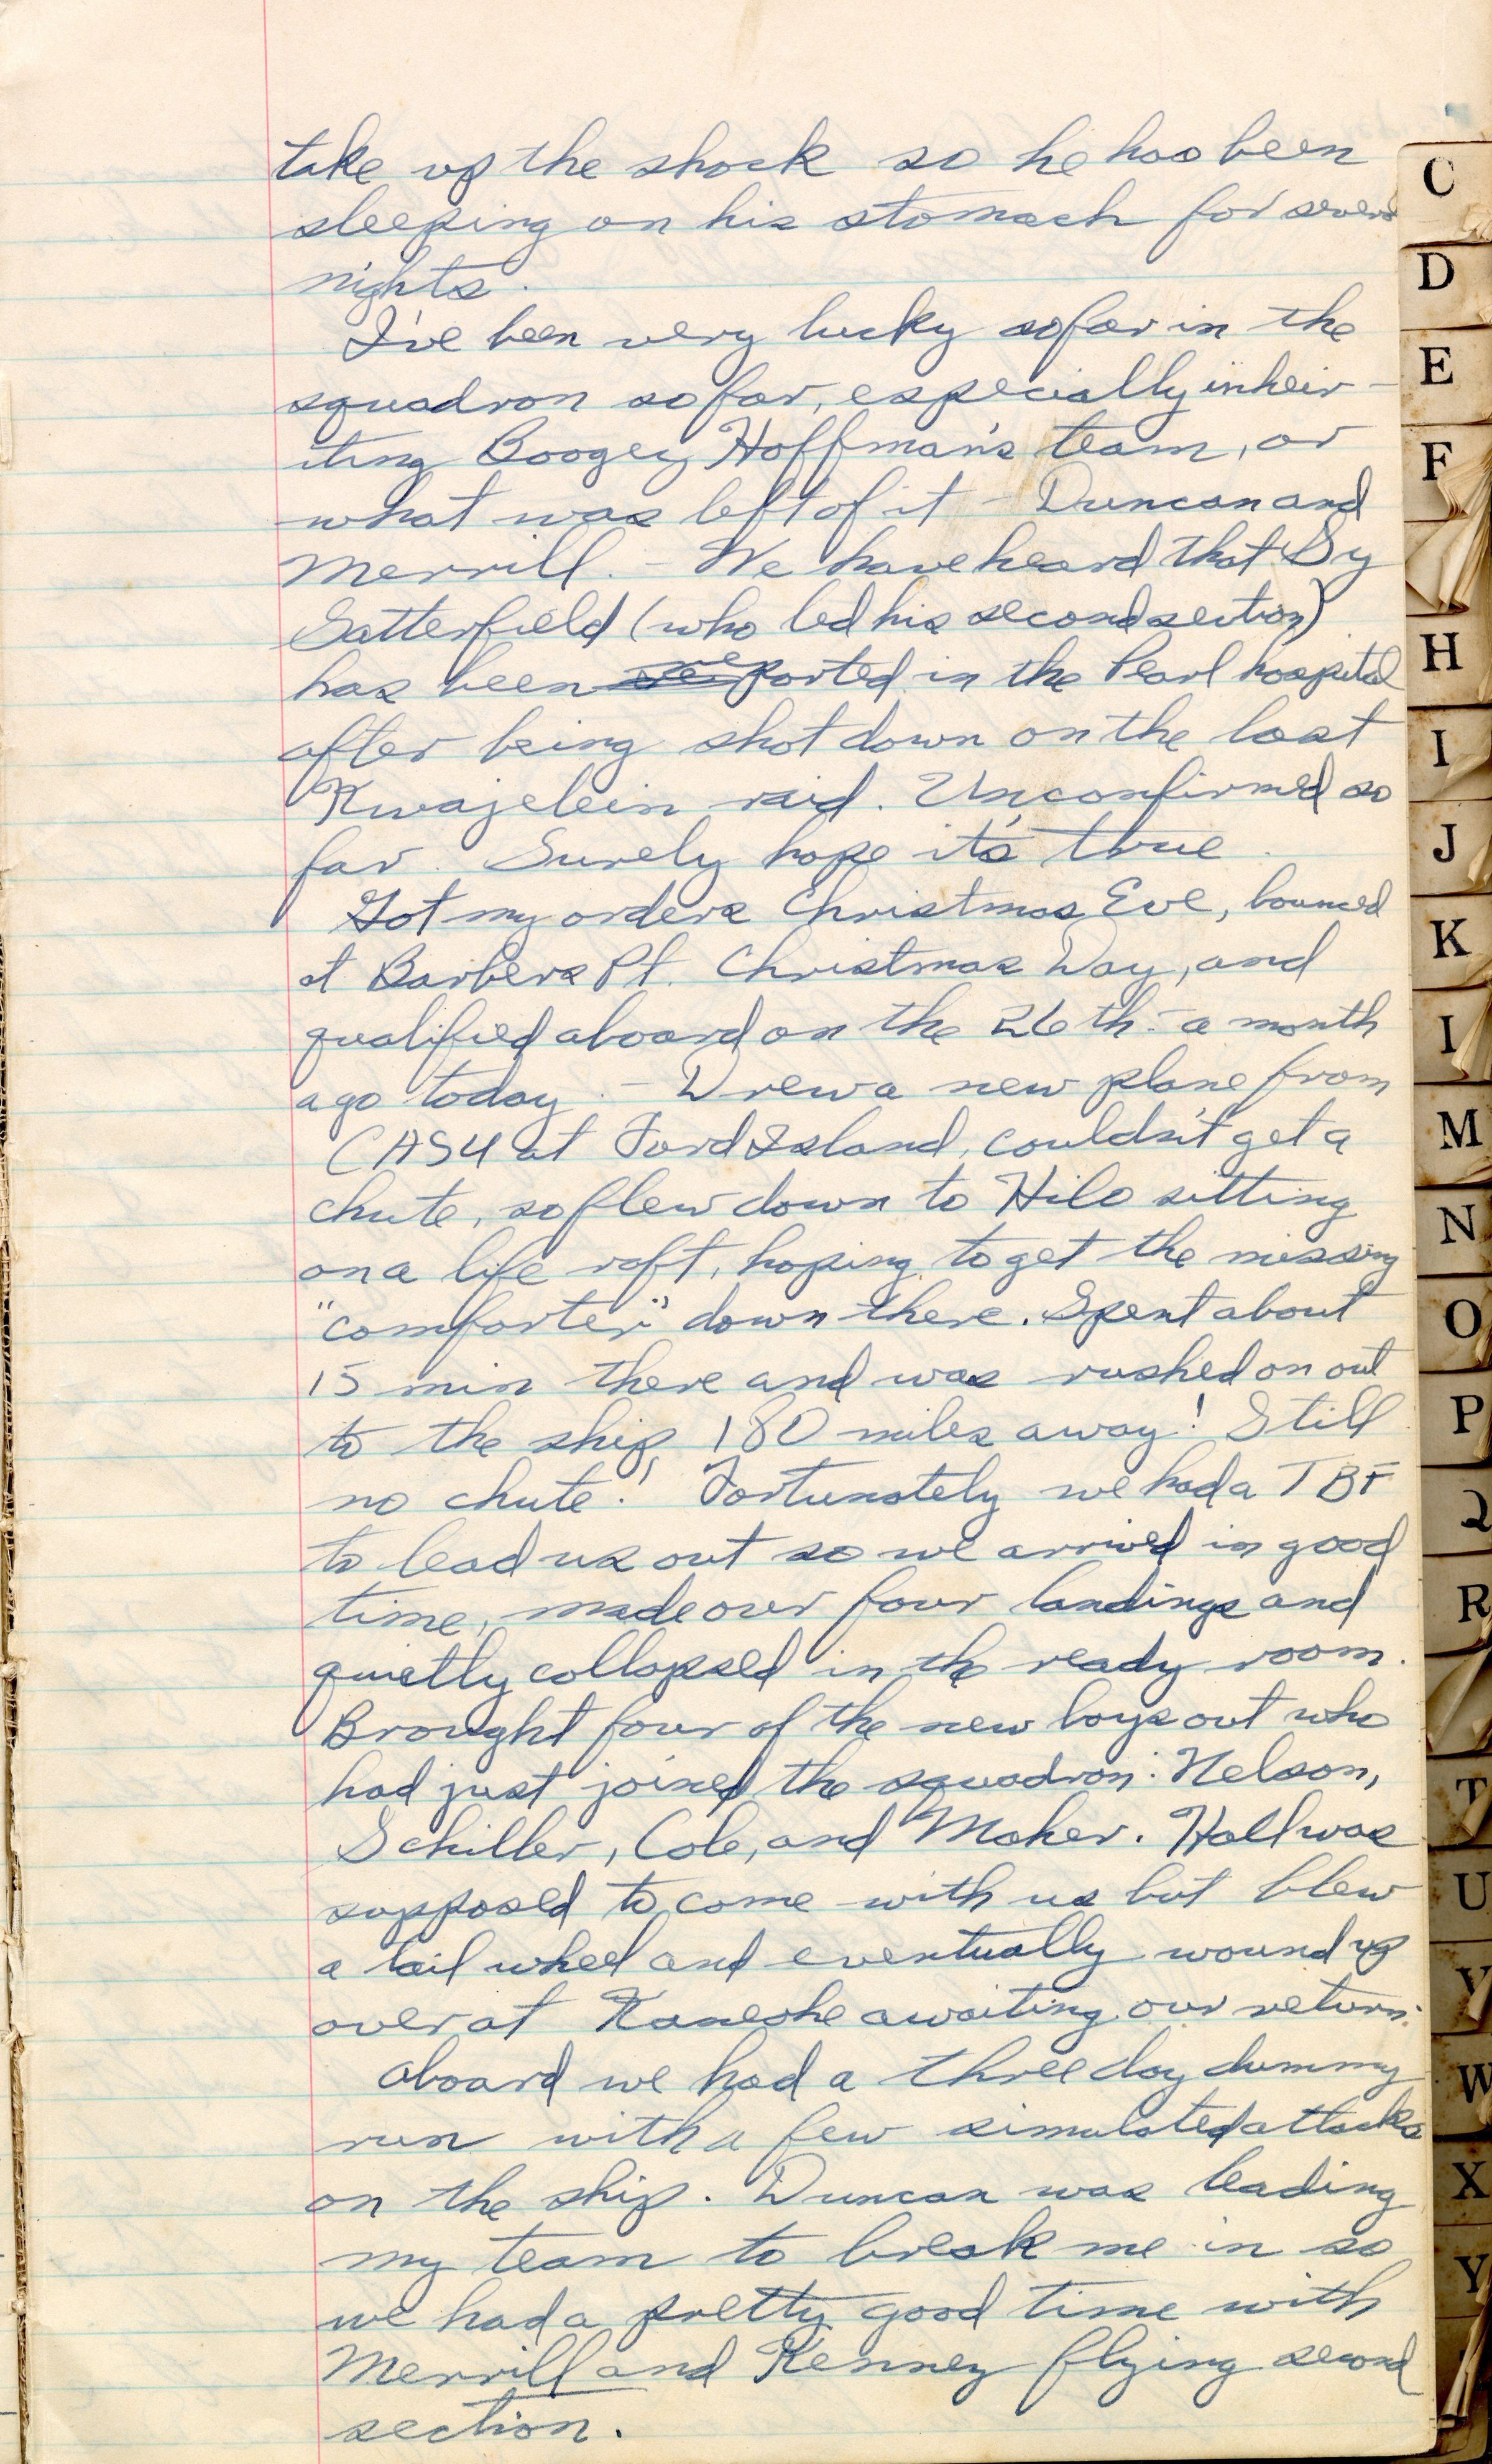 take up the shock so he has been
sleeping on his stomach for several
nights.
I've been very lucky so far in the
squadron so far, especially inheir-
iting Boogey Hoffman's team, or
what was left of it - Duncan and
Merrill. - We have heard that Sy
Satterfield (who led his second section)
has been reported in the Pearl hospital
after being shot down on the last
Kwajelein raid. Unconfirmed so
far. Surely hope it's true.
Got my orders Christmas Eve, bounced
at Barbers Pt. Christmas Day, and
qualified aboard on the 26th - a month
ago today. - Drew a new plane from
CASU at Ford Island, couldn't get a
chute, so flew down to Hilo sitting
on a life raft, hoping to get the missing
"comforter" down there. Spent about
15 min there and was rushed on out
to the ship, 180 miles away! Still
no chute! Fortunately we had a TBF
to lead us out so we arrived in good
time, made our four landings and
quietly collapsed in the ready room.
Brought four of the new boys out who
had just joined the squadron: Nelson,
Schiller, Cole, and Maher. Hall was
supposed to come with us but blew
a tail wheel and eventually wound up
over at Kaneohe awaiting our return.
Aboard we had a three day dummy
run with a few simulated attacks
on the ship. Duncan was leading
my team to break me in so
we had a pretty good time with
Merrill and Kenney flying second
section.
C
D
E
F
H
I
J
K
I
M
N
O
P
Q
R
T
U
V
W
X
Y